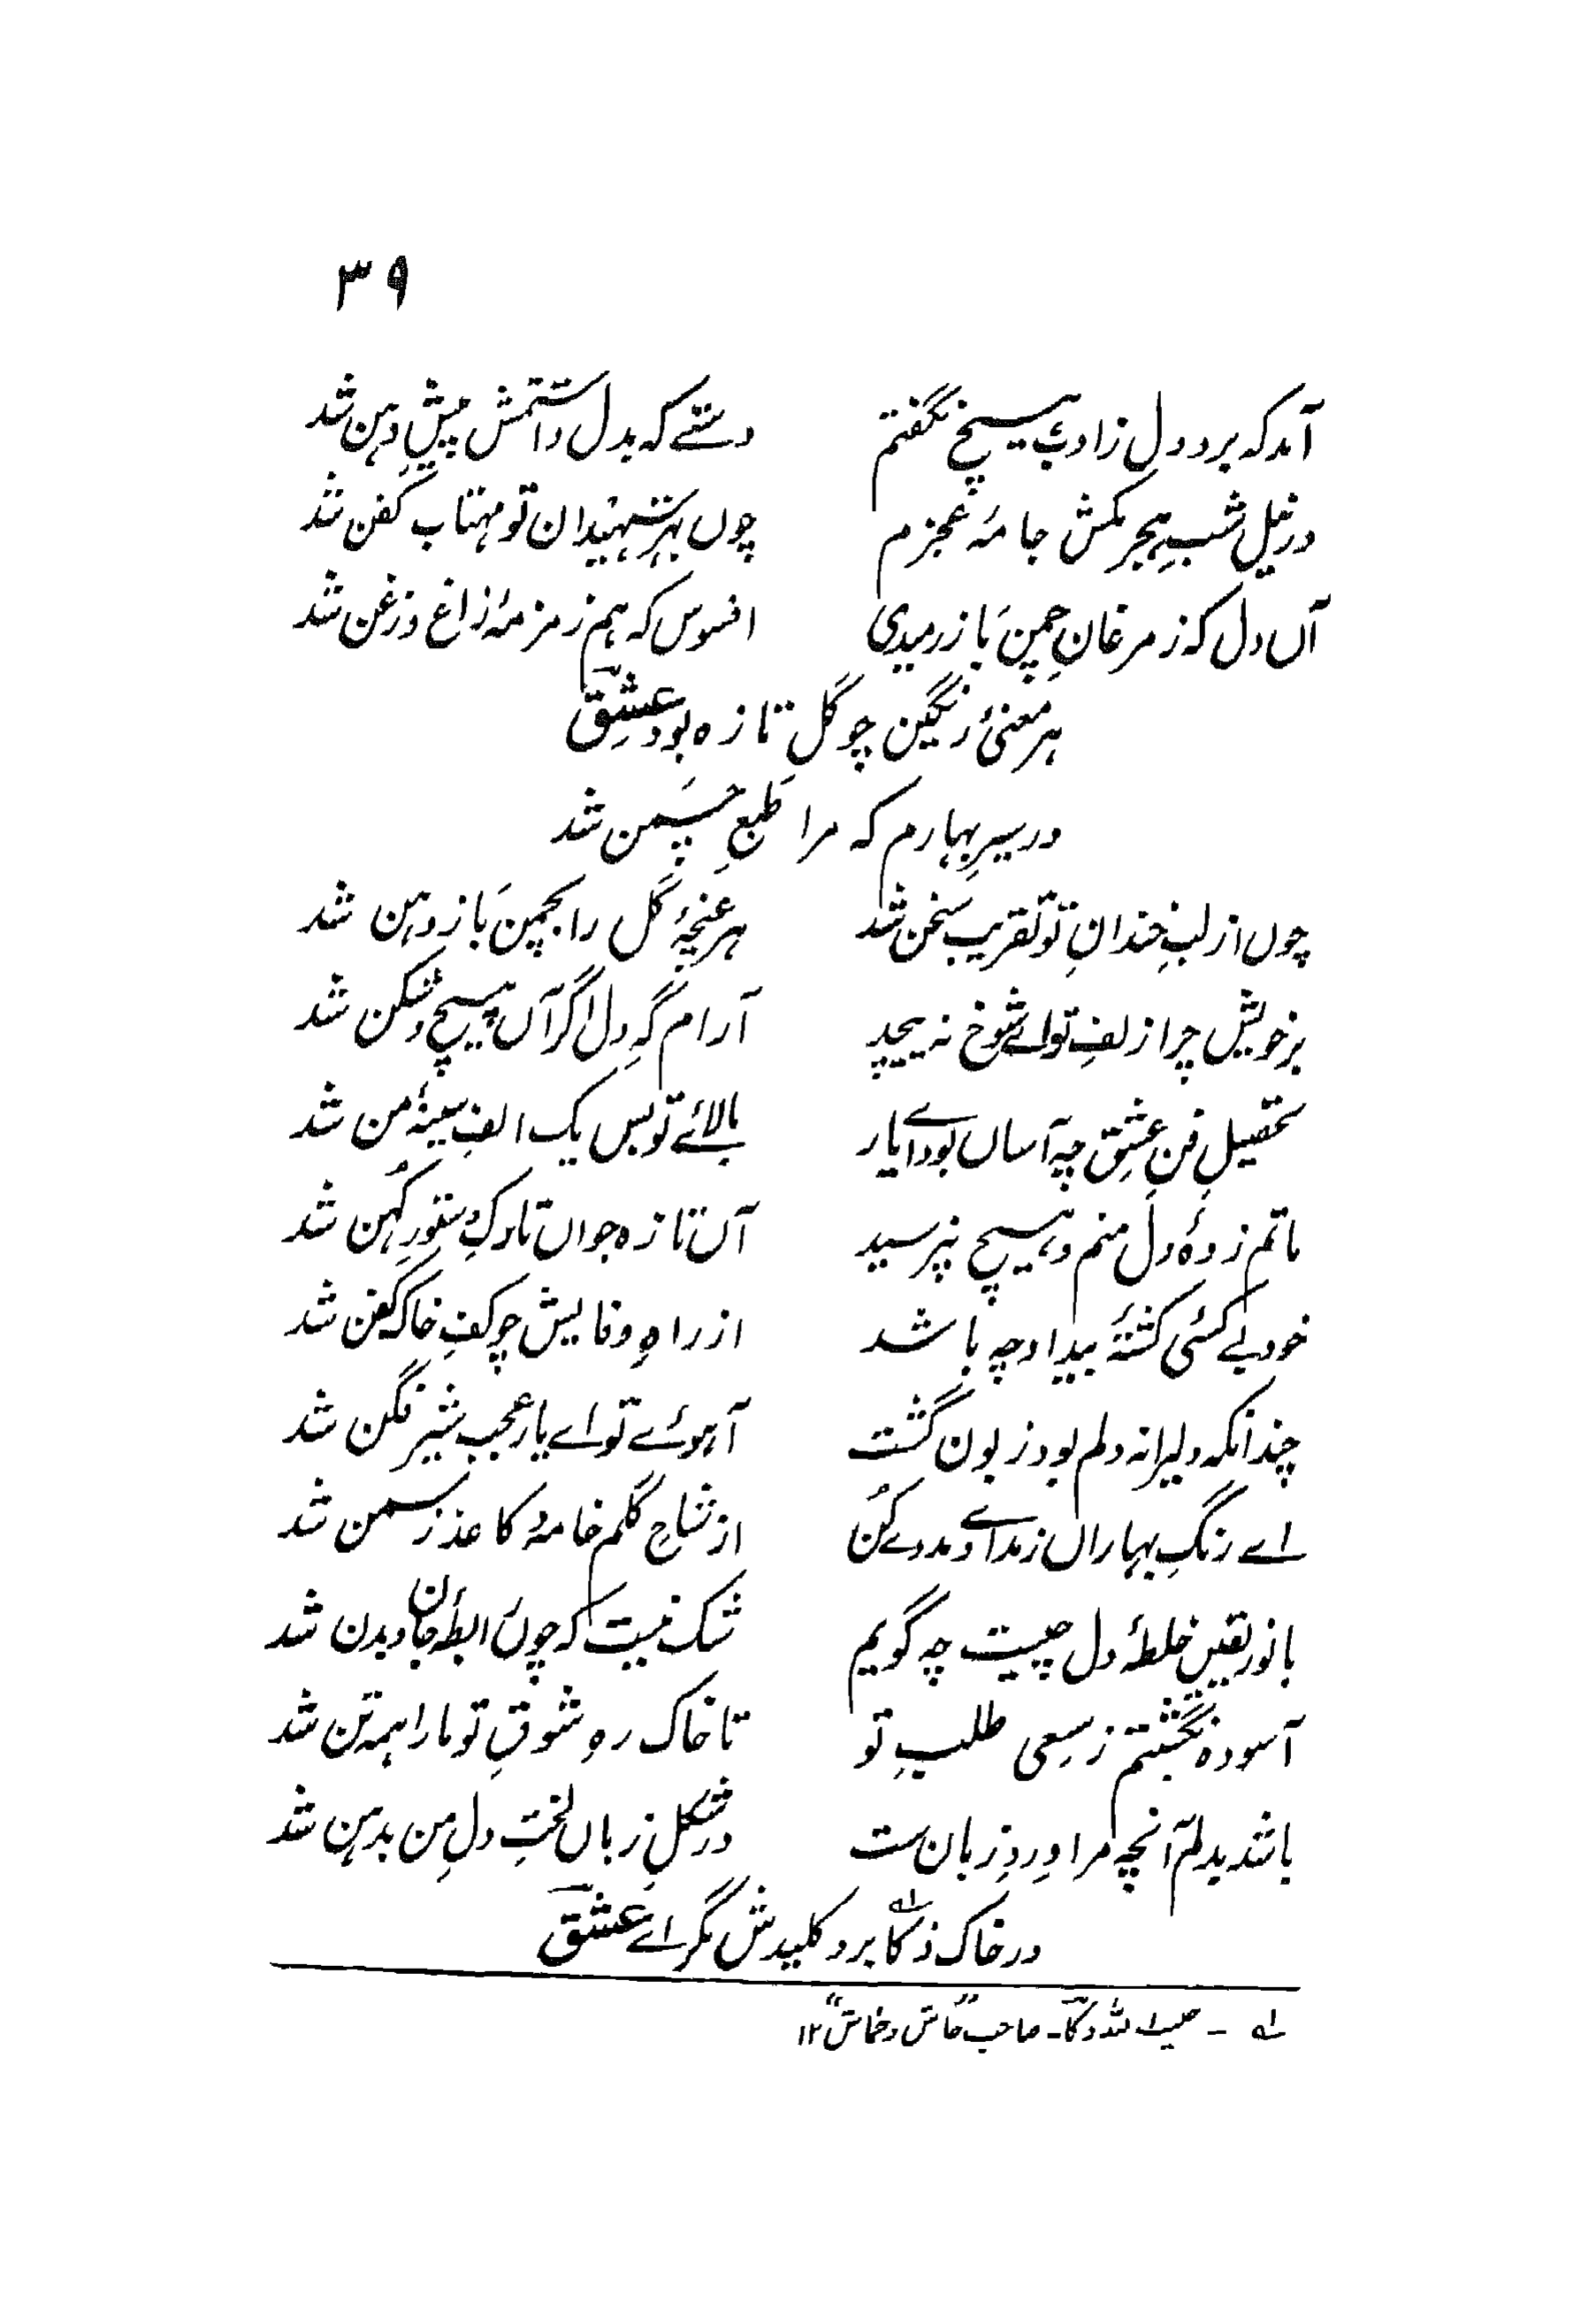 ۳۹
آمد که برد دل ز ادب ہیچ نگفتم دستے که بدل داشتمش پیشِ دہن شد
در نیل شبِ ہجر مکش جامۂ عجزم چوں بہر شہیدانِ تو مہتاب کفن شد
آں دل که ز مرغانِ چمن باز رمیدی افسوس که ہم زمزمۂ زاغ و زغن شد
ہر معنیٔ رنگین چو گل تازه بود عشق
در سیرِ بہارم که مرا طبعِ چمن شد
چوں از لبِ خندانِ تو تقریب سخن شد ہر غنچۂ گل را بچمن باز دہن شد
بر خویش چرا زلفِ تو اے شوخ نہ پیچد آرام گہِ دل اگر آں پیچ و شکن شد
تحصیلِ فنِ عشق چہ آساں بود اے یار بالائے تو بس یک الفِ سینۂ من شد
ماتم زدۂ دل منم و ہیچ نپرسید آں تازه جواں تارکِ دستورِ کُہن شد
خود بے کسئی کشتۂ بیداد چہ باشد از راہِ وفایش چو کفِ خاک کفن شد
چندانکه دلیرانہ دلم بود زبون گشت آہوئے تو اے یار عجب شیر فگن شد
اے رنگِ بہاراں ز مداے و مددے کُن از شاخِ گلم خامہ و کاغذ ز سمن شد
با نورِ یقیں خلطۂ دل چیست چہ گویم شک نیست که چوں رابطۂ جان و بدن شد
آسوده نگشتم ز سعی طلبِ تو تا خاک رهِ شوقِ تو ما را ہمہ تن شد
باشد بدلم آنچہ مرا وِردِ زبان ست در شکلِ زباں لختِ دلِ من بدہن شد
در خاک ذکاؔ برد کلیدش مگر اے عشق
لہ ـ ذکاؔ ـ صاحب "قاش و خماش" ۱۲